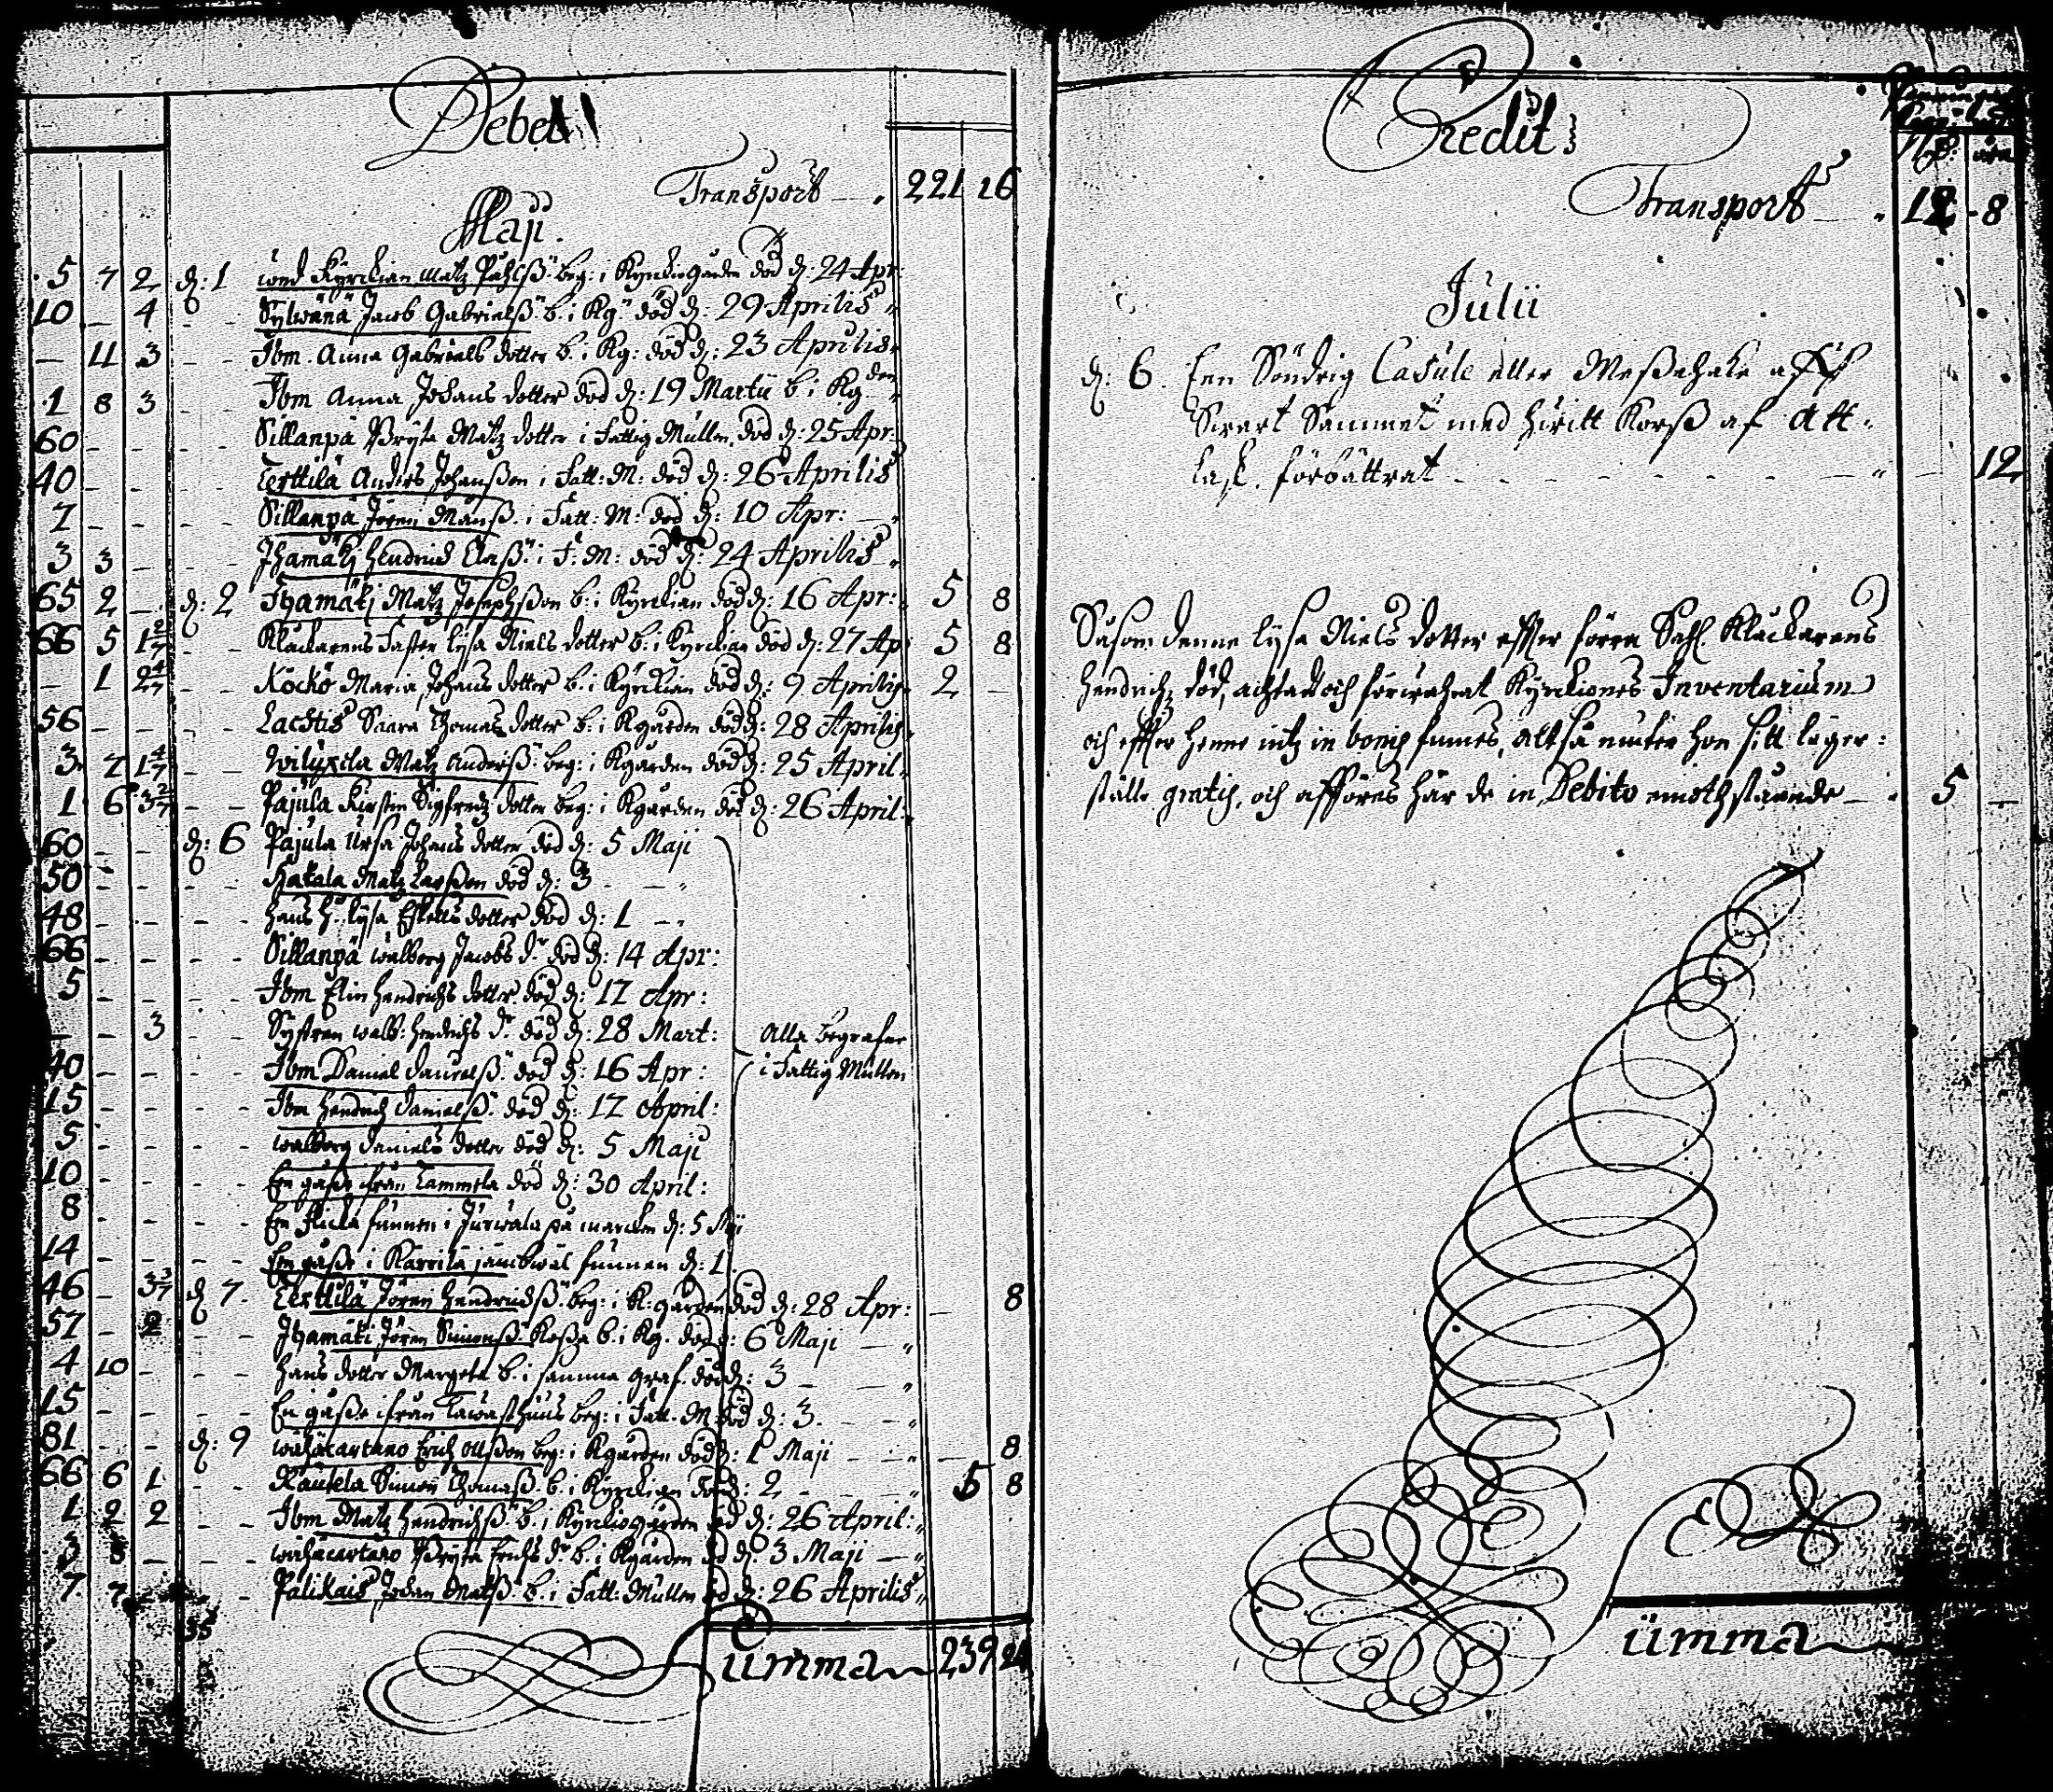 Debet
Transport 221 16
Maji.
5 7 2 d: 1 Matz beg: i Kyrckiogården död d: 24 Apr:
10 _ 4 Jacob Gabrielß: b. i Kg: död d: 29 Aprilis
_ 11 3 Ibm. Anna Gabriels dotter b. i Kg: död d: 23 Aprilis
1 8 3 Ibm Anna Johans dotter död d: 19 Martii b. i Kg
60 Sillanpä Bryta Matz dotter i Fattig Mullen död d: 25 Apr:
40 Terttilä Anders Johanßon i Fatt: M: död d: 26 Aprilis
7 Sillanpä Jören Månß. i Fatt: M: död d: 10 Apr:
3 3 Ihamäki Hendrich i F: M: död d: 24 Aprilis
65 2 d: 2 Ihamäki Matz Josephßon b: i Kyrckian död d: 16 Apr: 5 8
66 5 1 2/7 Klackarens Faster Lysa Niels dotter b: i Kyrckian död d: 27 Ap 5 8
_ 1 2 4/7 Köckö Maria Johans dotter b. i Kyrckian död d: 9 Aprilis 2 _
56 Lachtis Saara Thomas dotter b: i Kgården död d: 28 Aprilis
3 7 1 4/7 Matz Anderß: beg: i Kgården död d: 25 April
1 6 3 2/7 Pajula Kirstin Sigfredz dotter beg: i Kgården död d: 26 April:
60 d: 6 Pajula Ursa Johans dotter död d: 5 Maji
50 Hakala Matz Larßon död d: 3
48 Hans H. Lysa Eskells dotter död d: 1
66 Sillanpä Walborg Jacobs dr död d: 14 Apr:
5 Ibm Elin Hendrichs dotter död d: 17 Apr:
_ 3 Systren Walb: Hendrichs dr död d: 28 Mart:
Alla begrafne
40 Ibm Daniel död d: 16 Apr:
i Fattig Mullen
15 Ibm Hendrich Danielß: död d: 17 April:
5 Walborg Daniels dotter död d: 5 Maji
10 En gåße ifrån Tammela död d: 30 April:
8 En flicka funnen i på marcken d: 5 Maji
14 En gåße i Karrila funnen d: 1
46 _ 3 3/7 d 7. Terttilä Jören Hendrichß: beg: i K: gården död d: 28 Apr: _ 8
57 _ 2 Ihamäki Jören Simonß. b. i Kg. död d: 6 Maji
4 10 Hans dotter Margeta b. i samma graf. död d: 3
15 En gåße ifrån Tawasthuus beg: i Fatt. M död d: 3.
81 d: 9 Erich Olßon beg: i Kgården död d: 1 Maji _ 8
66 6 1 Raukela Simon Thomaß. b. i Kyrckian död d: 2 5 8
1 2 2 Ibm Matz Hendrichß: b. i Kyrckiogården död d: 26 April:
3 8 Bryta Erichs dr b. i Kgården död d: 3 Maji
7 7 Palikais Johan Matß: b. i Fatt: Mullen död d: 26 Aprilis
35
Summa 239 24
Credit
Transport 12 8
Julii
d: 6. Een Söndrig Casule eller Meßehake aff
Swart Sammet med hwitt Korß af Att-
lask. förbättrat 12
Såsom denne Lysa Niels dotter effter förra Sahl. Klackarens
Hendrichz död, achtadt och förwahrat Kyrckiones Inventarium
och effter henne intz in bonis funnes, altså niuter hon sitt läger:
ställe gratis, och afföres här de in Debito emoth stående 5 _
Summa